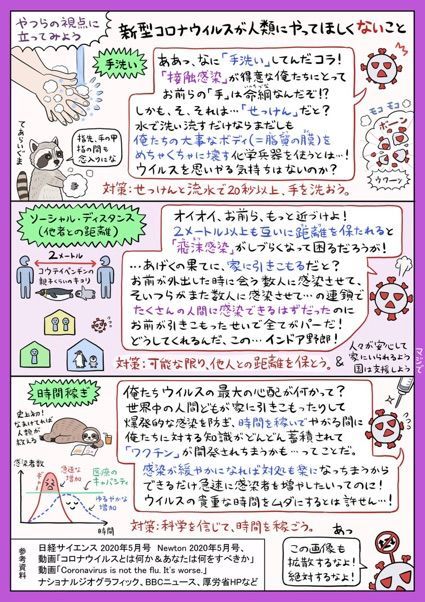 やつらの視点に
立ってみよう
新型コロナウイルスが人類にやってほしくないこと
手洗い
ああっ、なに「手洗い」してんだコラ!
「接触感染」が得意な俺たちにとって
お前らの「手」は命綱なんだぞ!?
しかも、そ、それは…「せっけん」だと?
水で洗い流すだけならまだしも
俺たちの大事なボディ(=脂質の膜)を
めちゃくちゃに壊す化学兵器を使うとは…!
ウイルスを思いやる気持ちはないのか?
てあらいぐま
指先、手の甲
指の間も
念入りにな
モコ モコ
ボーン
対策:せっけんと流水で20秒以上、手を洗おう。
ソーシャル・ディスタンス
(他者との距離)
2メートル
コウテイペンギンの
親子くらいのキョリ
オイオイ、お前ら、もっと近づけよ!
2メートル以上も互いに距離を保たれると
「飛沫感染」がしづらくなって困るだろうが!
…あげくの果てに、家に引きこもるだと?
お前が外出した時に会う数人に感染させて、
そいつらがまた数人に感染させて…の連鎖で
たくさんの人間に感染できるはずだったのに
お前が引きこもったせいで全てがパーだ!
どうしてくれるんだ、この…インドア野郎!
対策:可能な限り、他人との距離を保とう。
&
人々が安心して
家にいられるよう
国は支援しよう
マジで
時間稼ぎ
史上初!
なまけてれば
人類が
救える
俺たちウイルスの最大の心配が何かって?
世界中の人間どもが家に引きこもったりして
爆発的な感染を防ぎ、時間を稼いでやがる間に
俺たちに対する知識がどんどん蓄積されて
「ワクチン」が開発されちまうかも…ってことだ。
感染が緩やかになれば対処も楽になっちまうから
できるだけ急速に感染者を増やしたいってのに!
ウイルスの貴重な時間をムダにするとは許せん…!
感染者数
急速な
増加
医療の
キャパシティ
ゆるやかな
増加
時間
対策:科学を信じて、時間を稼ごう。
参考資料
日経サイエンス 2020年5月号 Newton 2020年5月号、
動画「コロナウイルスとは何か&あなたは何をすべきか」
動画「Coronavirus is not the flu. It's worse.」
ナショナルジオグラフィック、BBCニュース、厚労省HPなど
あっ
この画像も
拡散するなよ!
絶対するなよ!